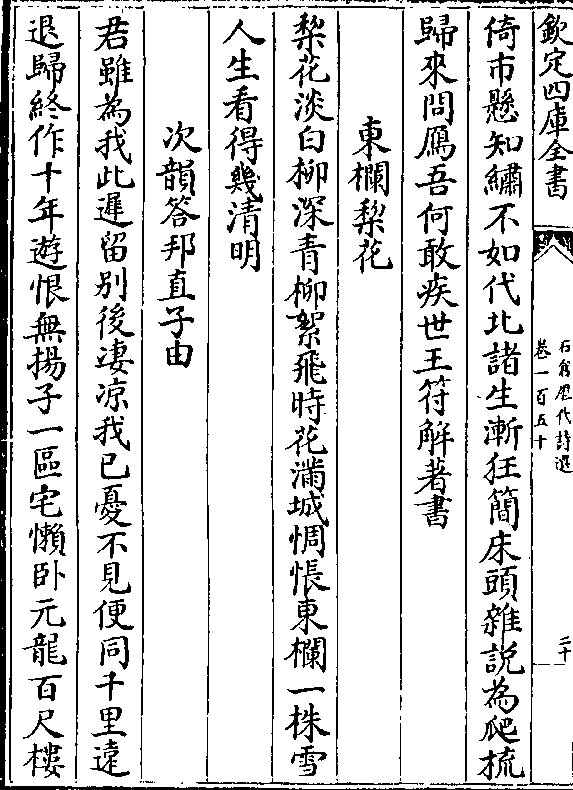 欽定四庫全書
石倉歷代詩選
卷一百五十
二十
倚市懸知繡不如代北諸生漸狂簡床頭雜說為爬梳
歸來問鴈吾何敢疾世王符解著書
東欄梨花
梨花淡白柳深青柳絮飛時花滿城惆悵東欄一株雪
人生看得幾清明
次韻答邦直子由
君雖為我此遲留别後凄凉我已憂不見便同千里遠
退歸終作十年遊恨無揚子一區宅懶卧元龍百尺樓